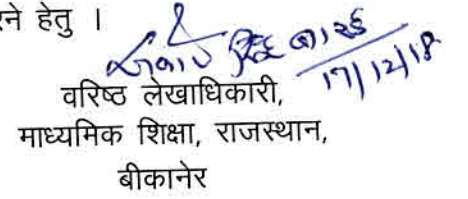 रने हेतु ।
17/12/18
वरिष्ठ लेखाधिकारी,
माध्यमिक शिक्षा, राजस्थान,
बीकानेर